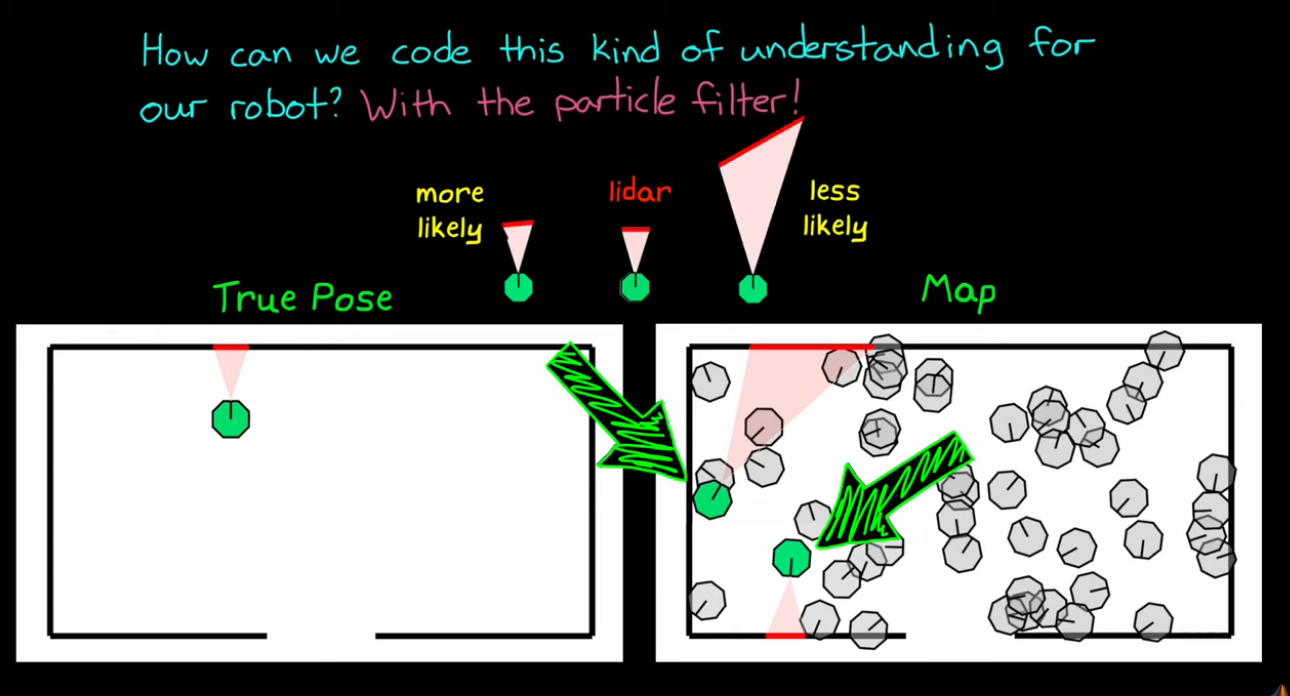 How can we code this kind of understanding for
our robot? With the particle filter!
more
likely
lidar
less
likely
True Pose
Map